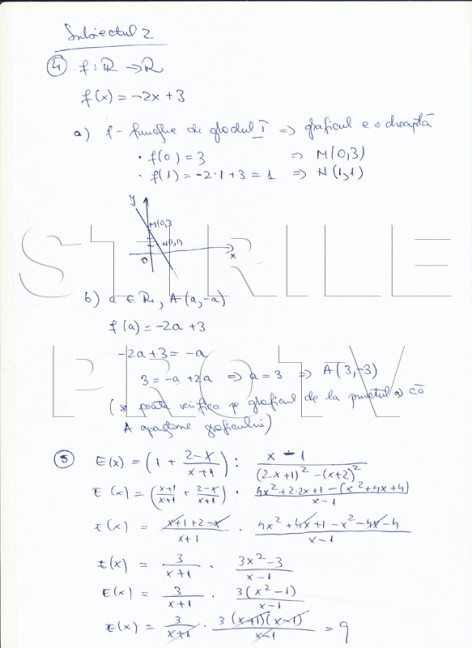 Subiectul 2
4 f: ℝ → ℝ
f(x) = -2x + 3
a) f - funcţie de gradul I ⇒ graficul e o dreaptă
• f(0) = 3 ⇒ M(0,3)
• f(1) = -2·1 + 3 = 1 ⇒ N(1,1)
y
M(0,3)
N(1,1)
0 x
STIRILE
b) a ∈ ℝ, A(a,-a)
f(a) = -2a + 3
-2a + 3 = -a
3 = -a + 2a ⇒ a = 3 ⇒ A(3,-3)
PROTV
(se poate verifica pe graficul de la punctul a) că
A aparţine graficului)
5 E(x) = (1 + (2-x)/(x+1)) : (x-1)/((2x+1)² - (x+2)²)
E(x) = ((x+1)/(x+1) + (2-x)/(x+1)) · (4x² + 2·2x + 1 - (x² + 4x + 4))/(x-1)
E(x) = (x+1+2-x)/(x+1) · (4x² + 4x + 1 - x² - 4x - 4)/(x-1)
E(x) = 3/(x+1) · (3x² - 3)/(x-1)
E(x) = 3/(x+1) · 3(x² - 1)/(x-1)
E(x) = 3/(x+1) · 3(x+1)(x-1)/(x-1) = 9